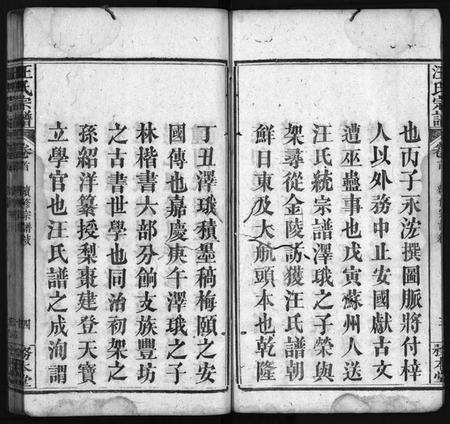 汪氏宗譜
卷首
也丙子永浤撰圖脈將付梓
人以外務中止安國獻古文
遭巫蠱事也戊寅蘇州人送
汪氏統宗譜澤珴之子榮與
架尋從金陵訪獲汪氏譜朝
鮮日東及大航頭本也乾隆
丁丑澤珴積墨稿梅頤之安
國傳也嘉慶庚午澤珴之子
林楷書大部分餉支族豐坊
之古書世學也同治初架之
孫紹洋纂授梨棗建登天寶
立學官也汪氏譜之成洵謂
汪氏宗譜
卷首
四